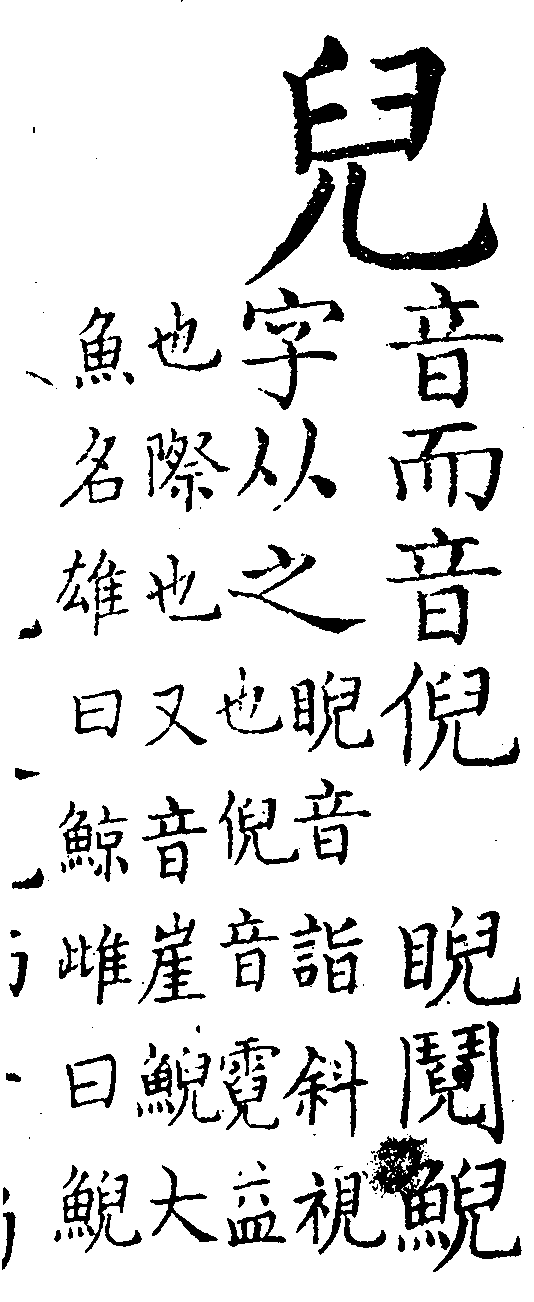 兒
音而音倪 睨鬩鯢
字从之
睨音詣斜視
也倪音霓益
也際也又音崖鯢大
魚名雄曰鯨雌曰鯢